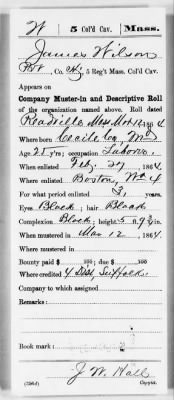 W 5 Col'd Cav. Mass.
James Wilson
Pvt, Co. H, 5 Reg't Mass. Col'd Cav.
Appears on
Company Muster-in and Descriptive Roll
of the organization named above. Roll dated
Readville Mass Mar 12, 1864
Where born Cecile Co, Md
Age 21 y'rs; occupation Laborer
When enlisted Feb. 27, 1864
Where enlisted Boston,
For what period enlisted 3,
Eyes Black; hair Black
Complexion Black; height 5 ft. in.
When mustered in Mar 12, 1864.
Where mustered in
Bounty paid $ 100; due $ 100
Where credited 4 Dist, Suffolk
Company to which assigned
Remarks:
Book mark:
J. W. Hall
Copyist.